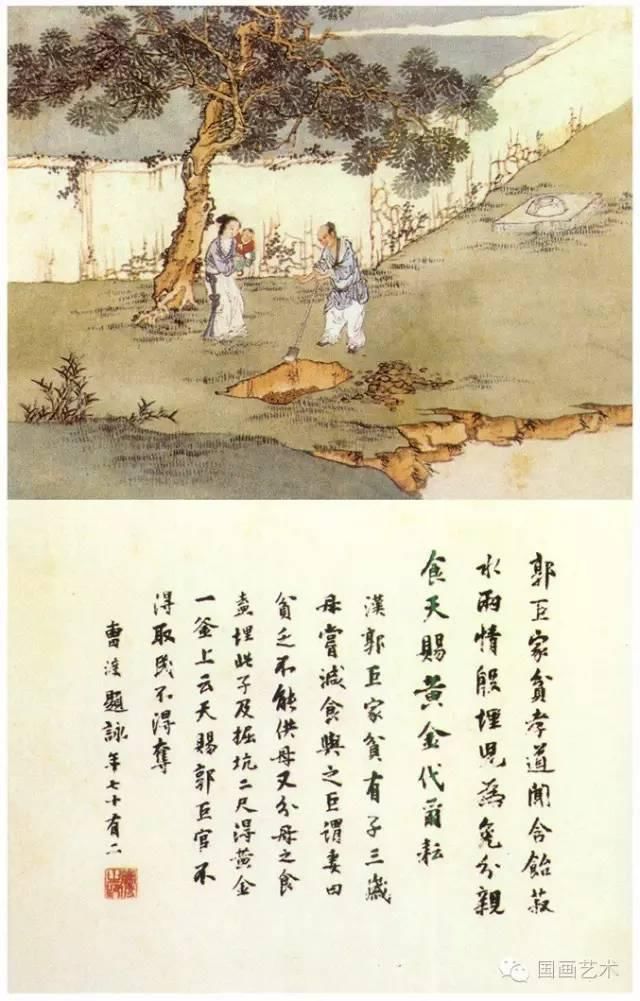 郭巨家貧孝道聞含飴菽
水兩情殷埋兒為免分親
食天賜黃金代爾耘
漢郭巨家貧有子三歲
母嘗減食與之巨謂妻曰
貧乏不能供母又分母之食
盍埋此子及掘坑二尺得黃金
一釜上云天賜郭巨官不
得取民不得奪
曹 題詠年七十有二
国画艺术